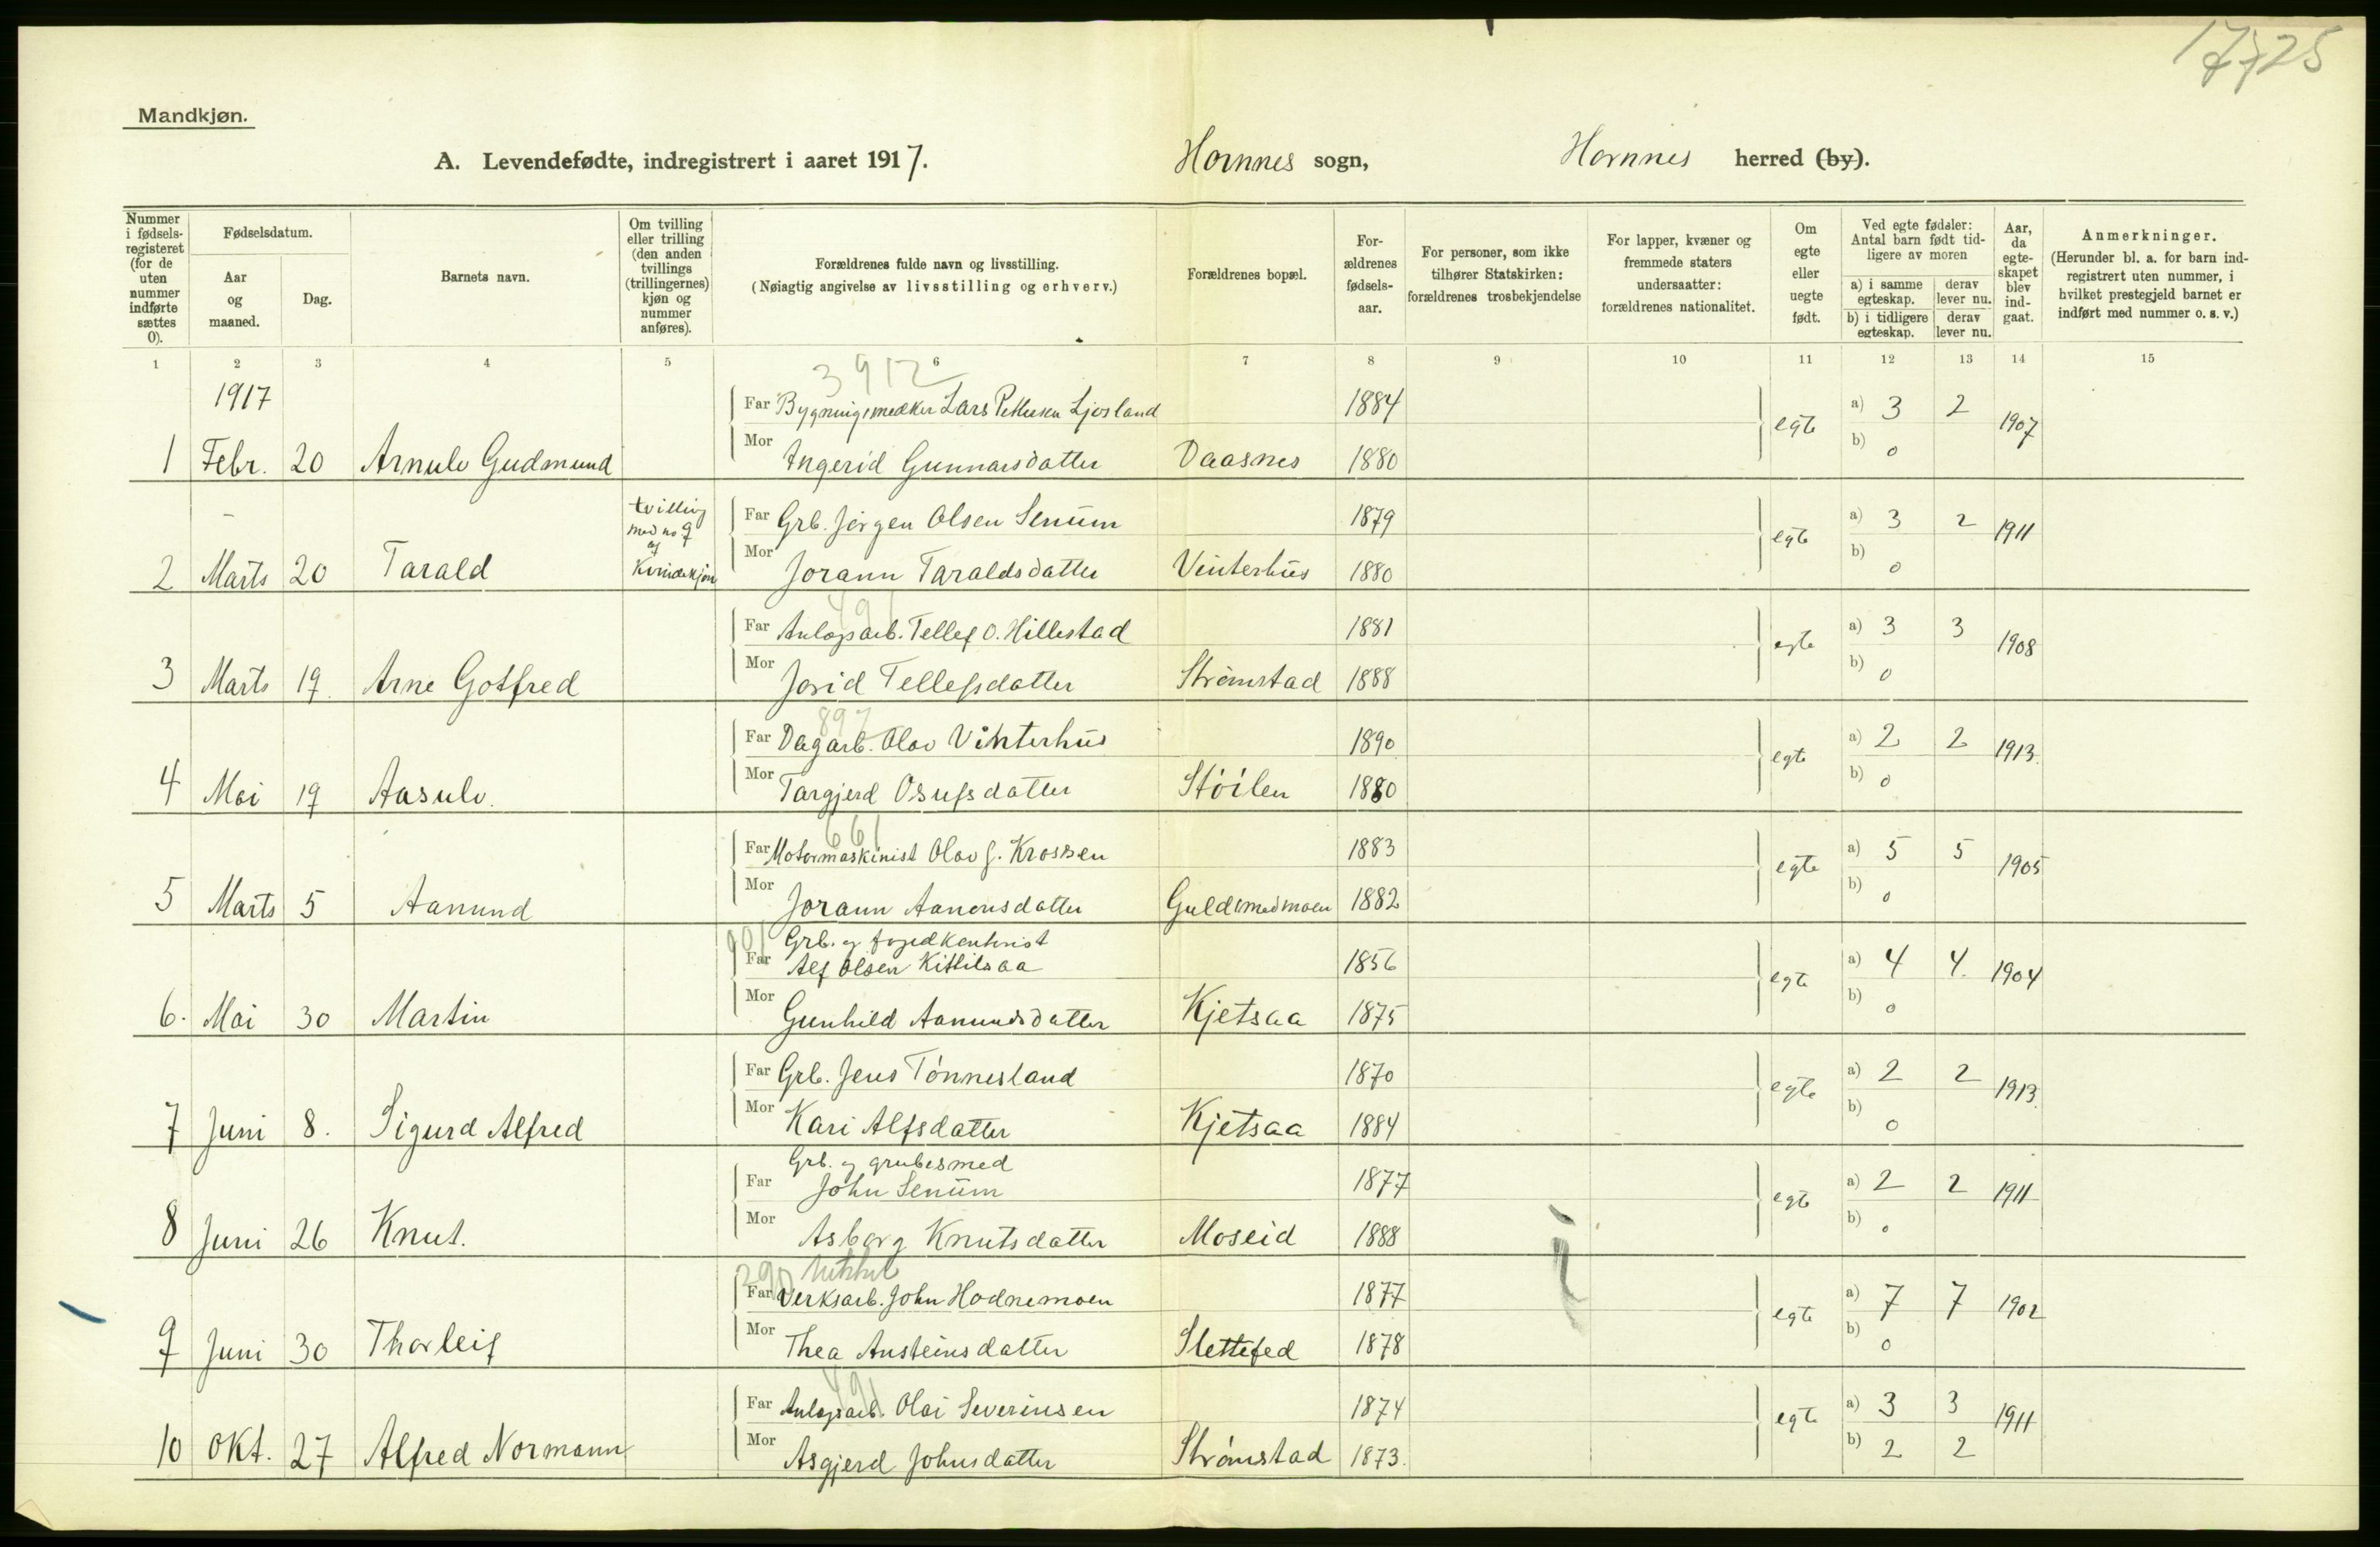 17725
Mandkjøn.
A. Levendefødte, indregistrert i aaret 1917. Hornnes sogn, Hornnes herred (by).
Nummer i fødselsregisteret (for de uten nummer indførte sættes 0).
Fødselsdatum.
Aar og maaned.
Dag.
Barnets navn.
Om tvilling eller trilling (den anden tvillings (trillingernes) kjøn og nummer anføres).
Forældrenes fulde navn og livsstilling.
(Nøiagtig angivelse av livsstilling og erhverv.)
Forældrenes bopæl.
For-ældrenes fødsels-aar.
For personer, som ikke tilhører Statskirken: forældrenes trosbekjendelse
For lapper, kvæner og fremmede staters undersaatter: forældrenes nationalitet.
Om egte eller uegte født.
Ved egte fødsler: Antal barn født tid-ligere av moren
a) i samme egteskap. derav lever nu.
b) i tidligere egteskap. derav lever nu.
Aar, da egte-skapet blev ind-gaat.
Anmerkninger.
(Herunder bl. a. for barn ind-registrert uten nummer, i hvilket prestegjeld barnet er indført med nummer o. s. v.)
1 2 3 4 5 6 7 8 9 10 11 12 13 14 15
3912
1917 Far Bygningsmedker Lars Pettersen Ljosland 1884 egte a) 3 2 1907
1 Febr. 20 Arnulv Gudmund Mor Ingerid Gunnarsdatter Daasnes 1880 b) 0
– tvilling med no 9 af Kvindekjøn Far Grb. Jørgen Olsen Senum 1879 egte a) 3 2 1911
2 Marts 20 Tarald Mor Jorann Taraldsdatter Vinterhus 1880 b) 0
491
Far Anlægsarb. Tellef O. Hillestad 1881 egte a) 3 3 1908
3 Marts 19. Arne Gotfred Mor Jorid Tellefsdatter Strømstad 1888 b) 0
897
Far Dagarb. Olav Vinterhus 1890 egte a) 2 2 1913.
4 Mai 19 Aasulv. Mor Targjerd Osufsdatter Støilen 1880 b) 0
661
Far Motormaskinist Olav J. Krossen 1883 egte a) 5 5 1905
5 Marts 5 Aanund Mor Jorann Aanensdatter Guldsmedmoen 1882 b) 0
901 Grb. og
Far Alf Olsen Kittilsaa 1856 egte a) 4 4. 1904
6. Mai 30 Martin Mor Gunhild Aanundsdatter Kjetsaa 1875 b) 0
Far Grb. Jens Tønnesland 1870 egte a) 2 2 1913
7 Juni 8. Sigurd Alfred Mor Kari Alfsdatter Kjetsaa 1884 b) 0
Grb. og grubesmed
Far John Senum 1877 egte a) 2 2 1911
8 Juni 26 Knut. Mor Asborg Knutsdatter Moseid 1888 b) 0
290
Far Verksarb. John Hodnemoen 1877 egte a) 7 7 1902
9 Juni 30 Thorleif Mor Thea Austeinsdatter Slettefed 1878 b) 0
491
Far Anlægsarb. Olai Severinsen 1874 egte a) 3 3 1911
10 Okt. 27 Alfred Normann Mor Asgjerd Johnsdatter Strømstad 1873. b) 2 2